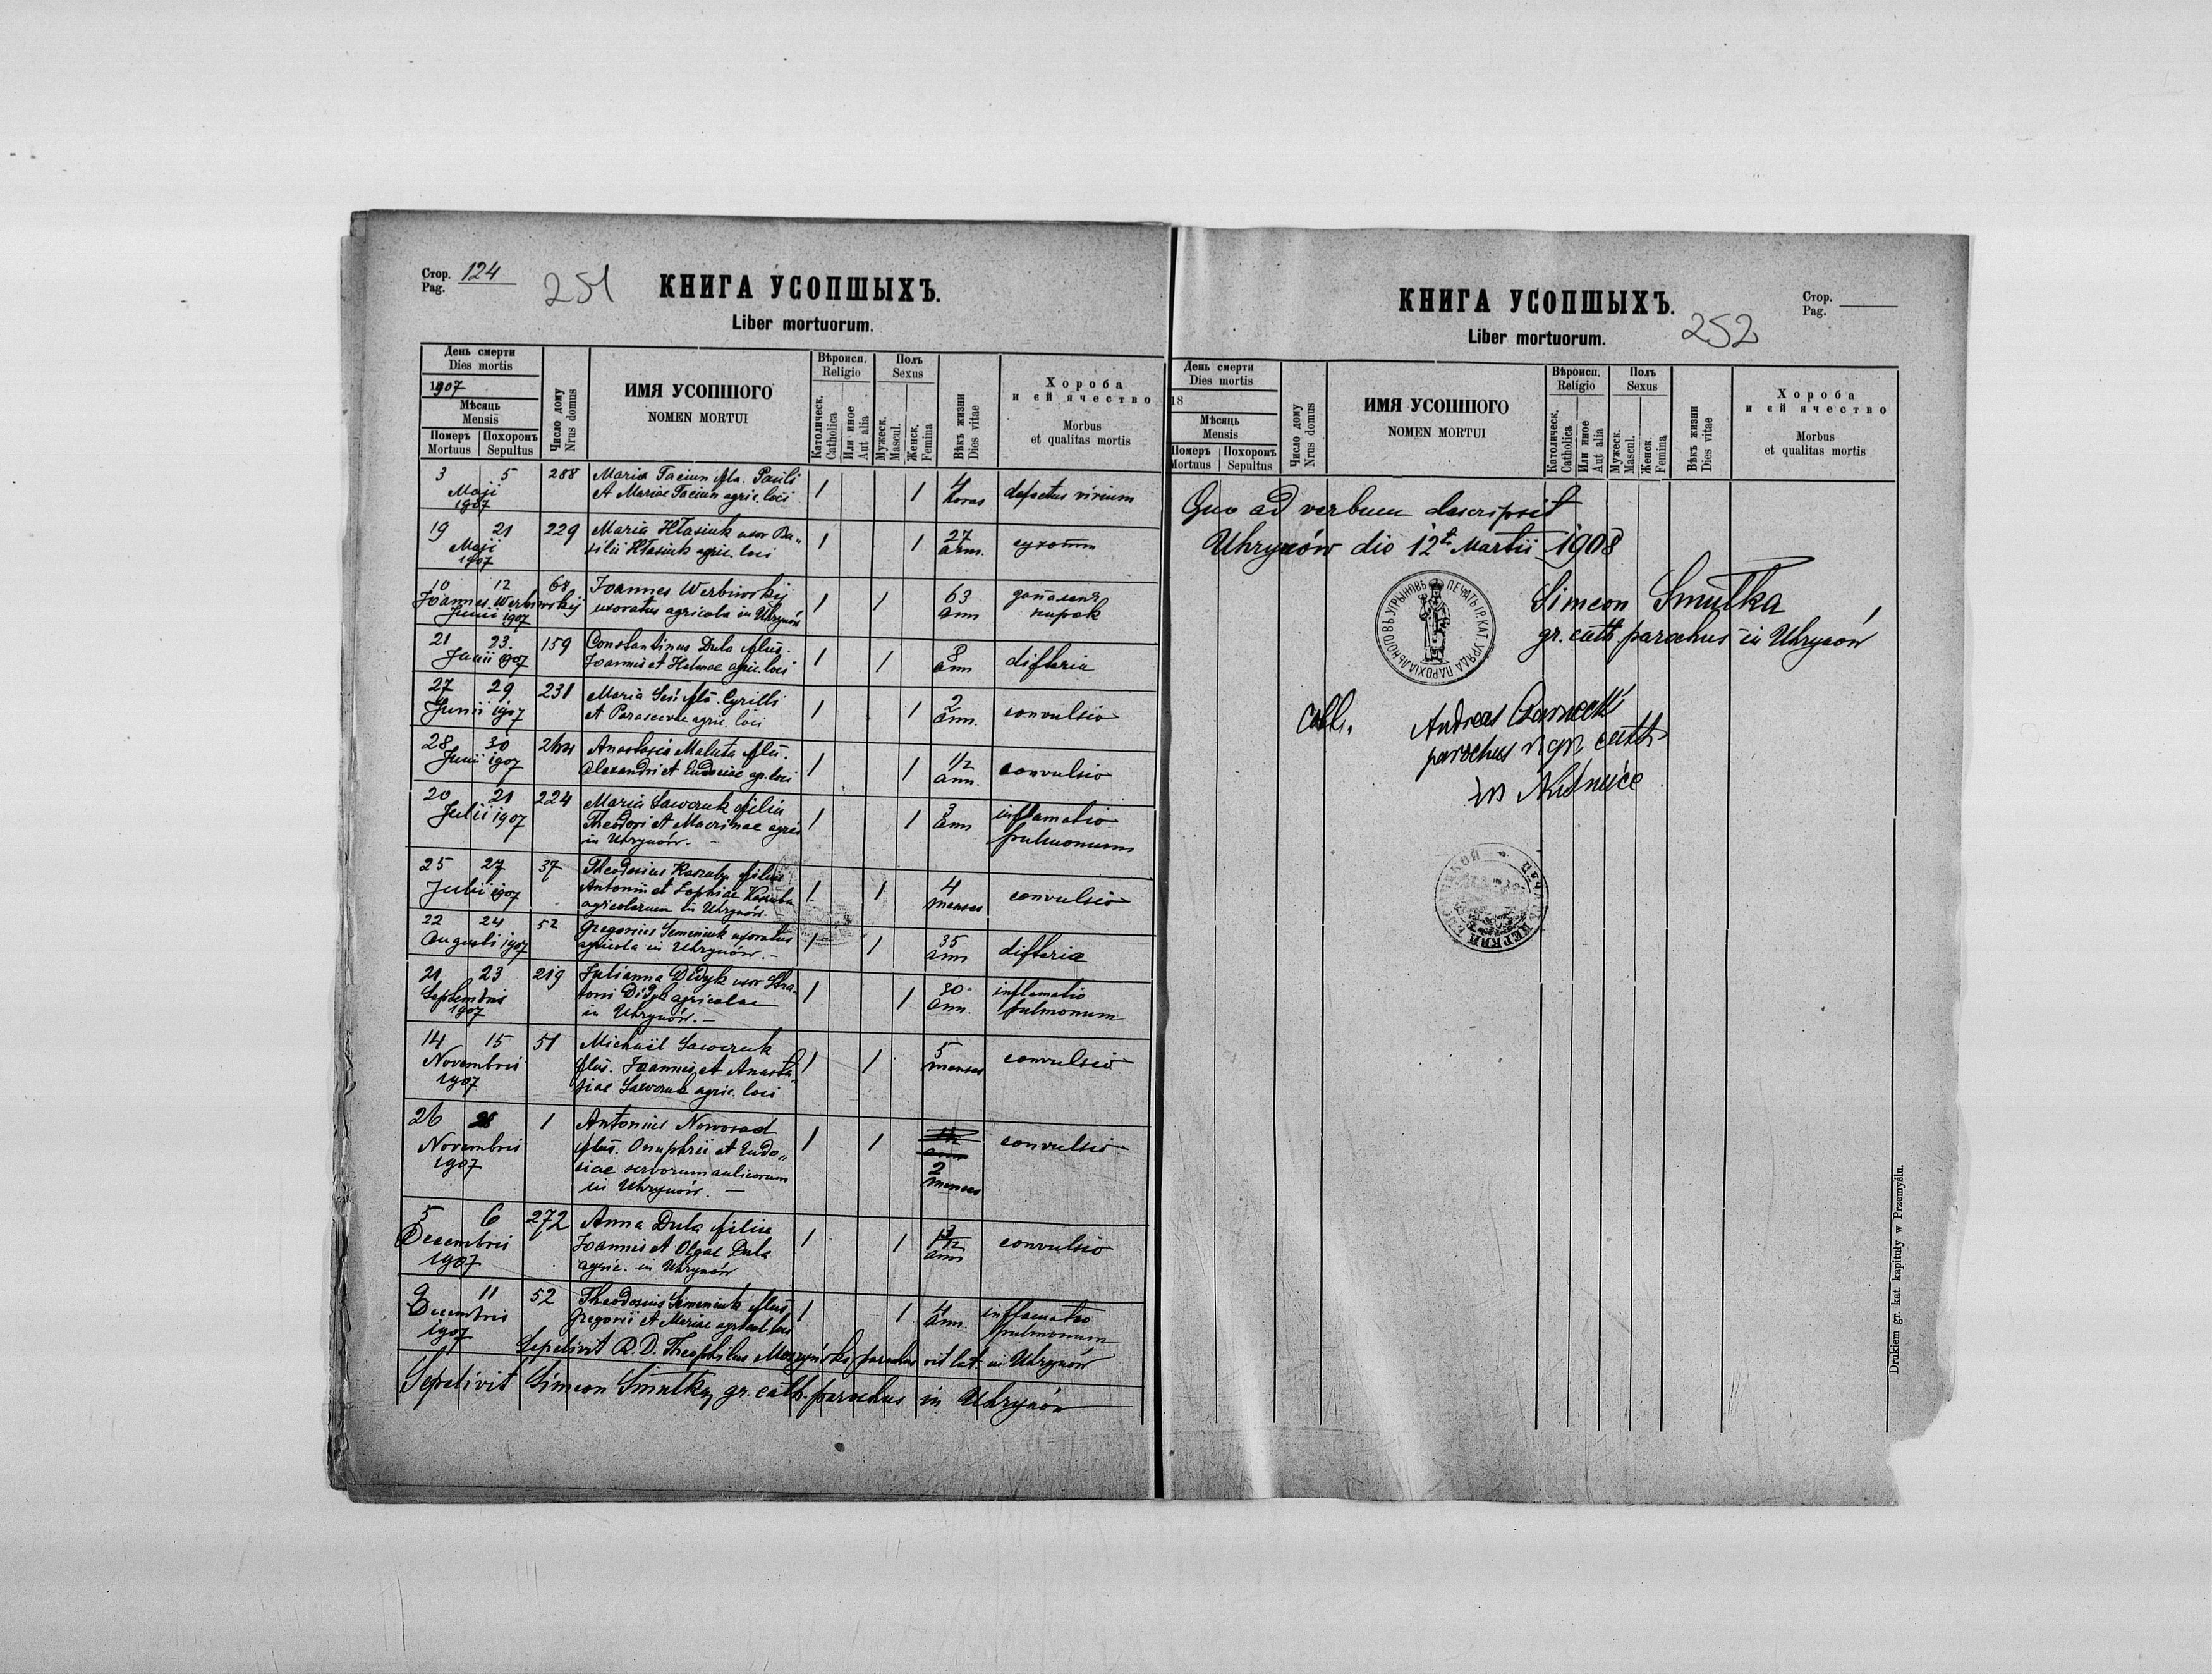 Стор. 124
Pag.
251
КНИГА УСОПШЫХЪ.
Liber mortuorum.
День смерти
Dies mortis
1907
Мѣсяць
Mensis
Померъ Похоронъ
Mortuus Sepultus
Число дому
Nrus domus
ИМЯ УСОПШОГО
NOMEN MORTUI
Вѣроисп.
Religio
Католическ.
Catholica
Или иное
Aut alia
Полъ
Sexus
Мужеск.
Mascul.
Женск.
Femina
Вѣкъ жизни
Dies vitae
Хороба
и ей ячество
Morbus
et qualitas mortis
3 5 288 Maria Faciun fla. Pauli
Maji et Mariae Faciun agric. loci 1 1 4 defectus virium
1907 horas
19 21 229 Maria Hłasiuk uxor Ba„
Maji silii Hłasiuk agric. loci 1 1 27 сухоти
1907 ann.
10 12 68 Joannes Werbiwskij
Joannes Werbiwskij uxoratus agricola in Uhrynów 1 1 63 запаленя
Junii 1907 ann нирок
21 23 159 Constantinus Dula flius.
Junii 1907 Joannis et Helenae agric. loci 1 1 8 difteria
ann
27 29 231 Maria fla. Cyrilli
Junii 1907 et Parascevae agric. loci 1 1 2 convulsio
ann.
28 30 Anastasia Maluta
Junii 1907 Alexandri et Eudociae ag. loci 1 1 1/2 convulsio
ann.
20 21 224 Maria Sawczuk filia
Julii 1907 Theodori et Macrinae agric 1 1 3 inflamatio
in Uhrynów. - ann pulmonum
25 27 37 Theodosius Kaszuba filius
Julii 1907 Antonii et Sophiae Kaszuba 1 1 4 convulsio
agricolarum in Uhrynów. menses
22 24 52 Gregorius Semeniuk uxoratus
Augusti 1907 agricola in Uhrynów. - 1 1 35 difteria
ann
21 23 219 Julianna Didyk uxor Stra-
Septembris toni Didyk agricolae 1 1 30 inflamatio
1907 in Uhrynów. - ann. pulmonum
14 15 51 Michaël Sawczuk
Novembris flius. Joannis et Anasta„ 1 1 5 convulsio
1907 siae Sawczuk agric. loci menses
26 28 1 Antonius Nowosad
Novembris flius. Onuphrii et Eudo„ 1 1 convulsio
1907 siae servorum aulicorum 2
in Uhrynów. - menses
5 6 272 Anna Dula filia
Decembris Joannis et Olgae Dula 1 1 convulsio
1907 agric. in Uhrynów ann
9 11 52 Theodosius Semeniuk flius
Decembris Gregorii et Mariae agricol. loci 1 1 4 inflamatio
1907 ann. pulmonum
Sepelivit R. D. Theophilus parochus rit lat. in Uhrynów
Sepelivit Simeon Smulka gr. cath. parochus in Uhrynów
КНИГА УСОПШЫХЪ.
Liber mortuorum.
252
Стор.
Pag.
День смерти
Dies mortis
18
Мѣсяць
Mensis
Померъ Похоронъ
Mortuus Sepultus
Число дому
Nrus domus
ИМЯ УСОПШОГО
NOMEN MORTUI
Вѣроисп.
Religio
Католическ.
Catholica
Или иное
Aut alia
Полъ
Sexus
Мужеск.
Mascul.
Женск.
Femina
Вѣкъ жизни
Dies vitae
Хороба
и ей ячество
Morbus
et qualitas mortis
Quo ad verbum descripsit
Uhrynów die 12t. Martii 1908
ПЕЧАТЬ ГР. КАТ. УРЯДА ПАРОХІАЛЬНОГО ВЪ УГРЫНОВЪ
Simeon Smulka
gr. cath. parochus in Uhrynów
Coll. Andreas Czarnecki
parochus r. gr. cath
in
Drukiem gr. kat. kapituły w Przemyślu.